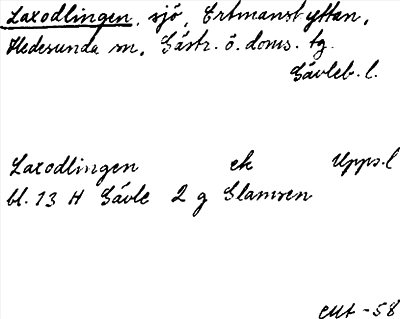 Laxodlingen, sjö, Ertmanstyttan,
Hedesunda sn, Gästr. ö. doms. tg.
Gävleb. l.
Laxodlingen ek Upps.l
bl. 13 H Gävle 2 g Glamsen
-58